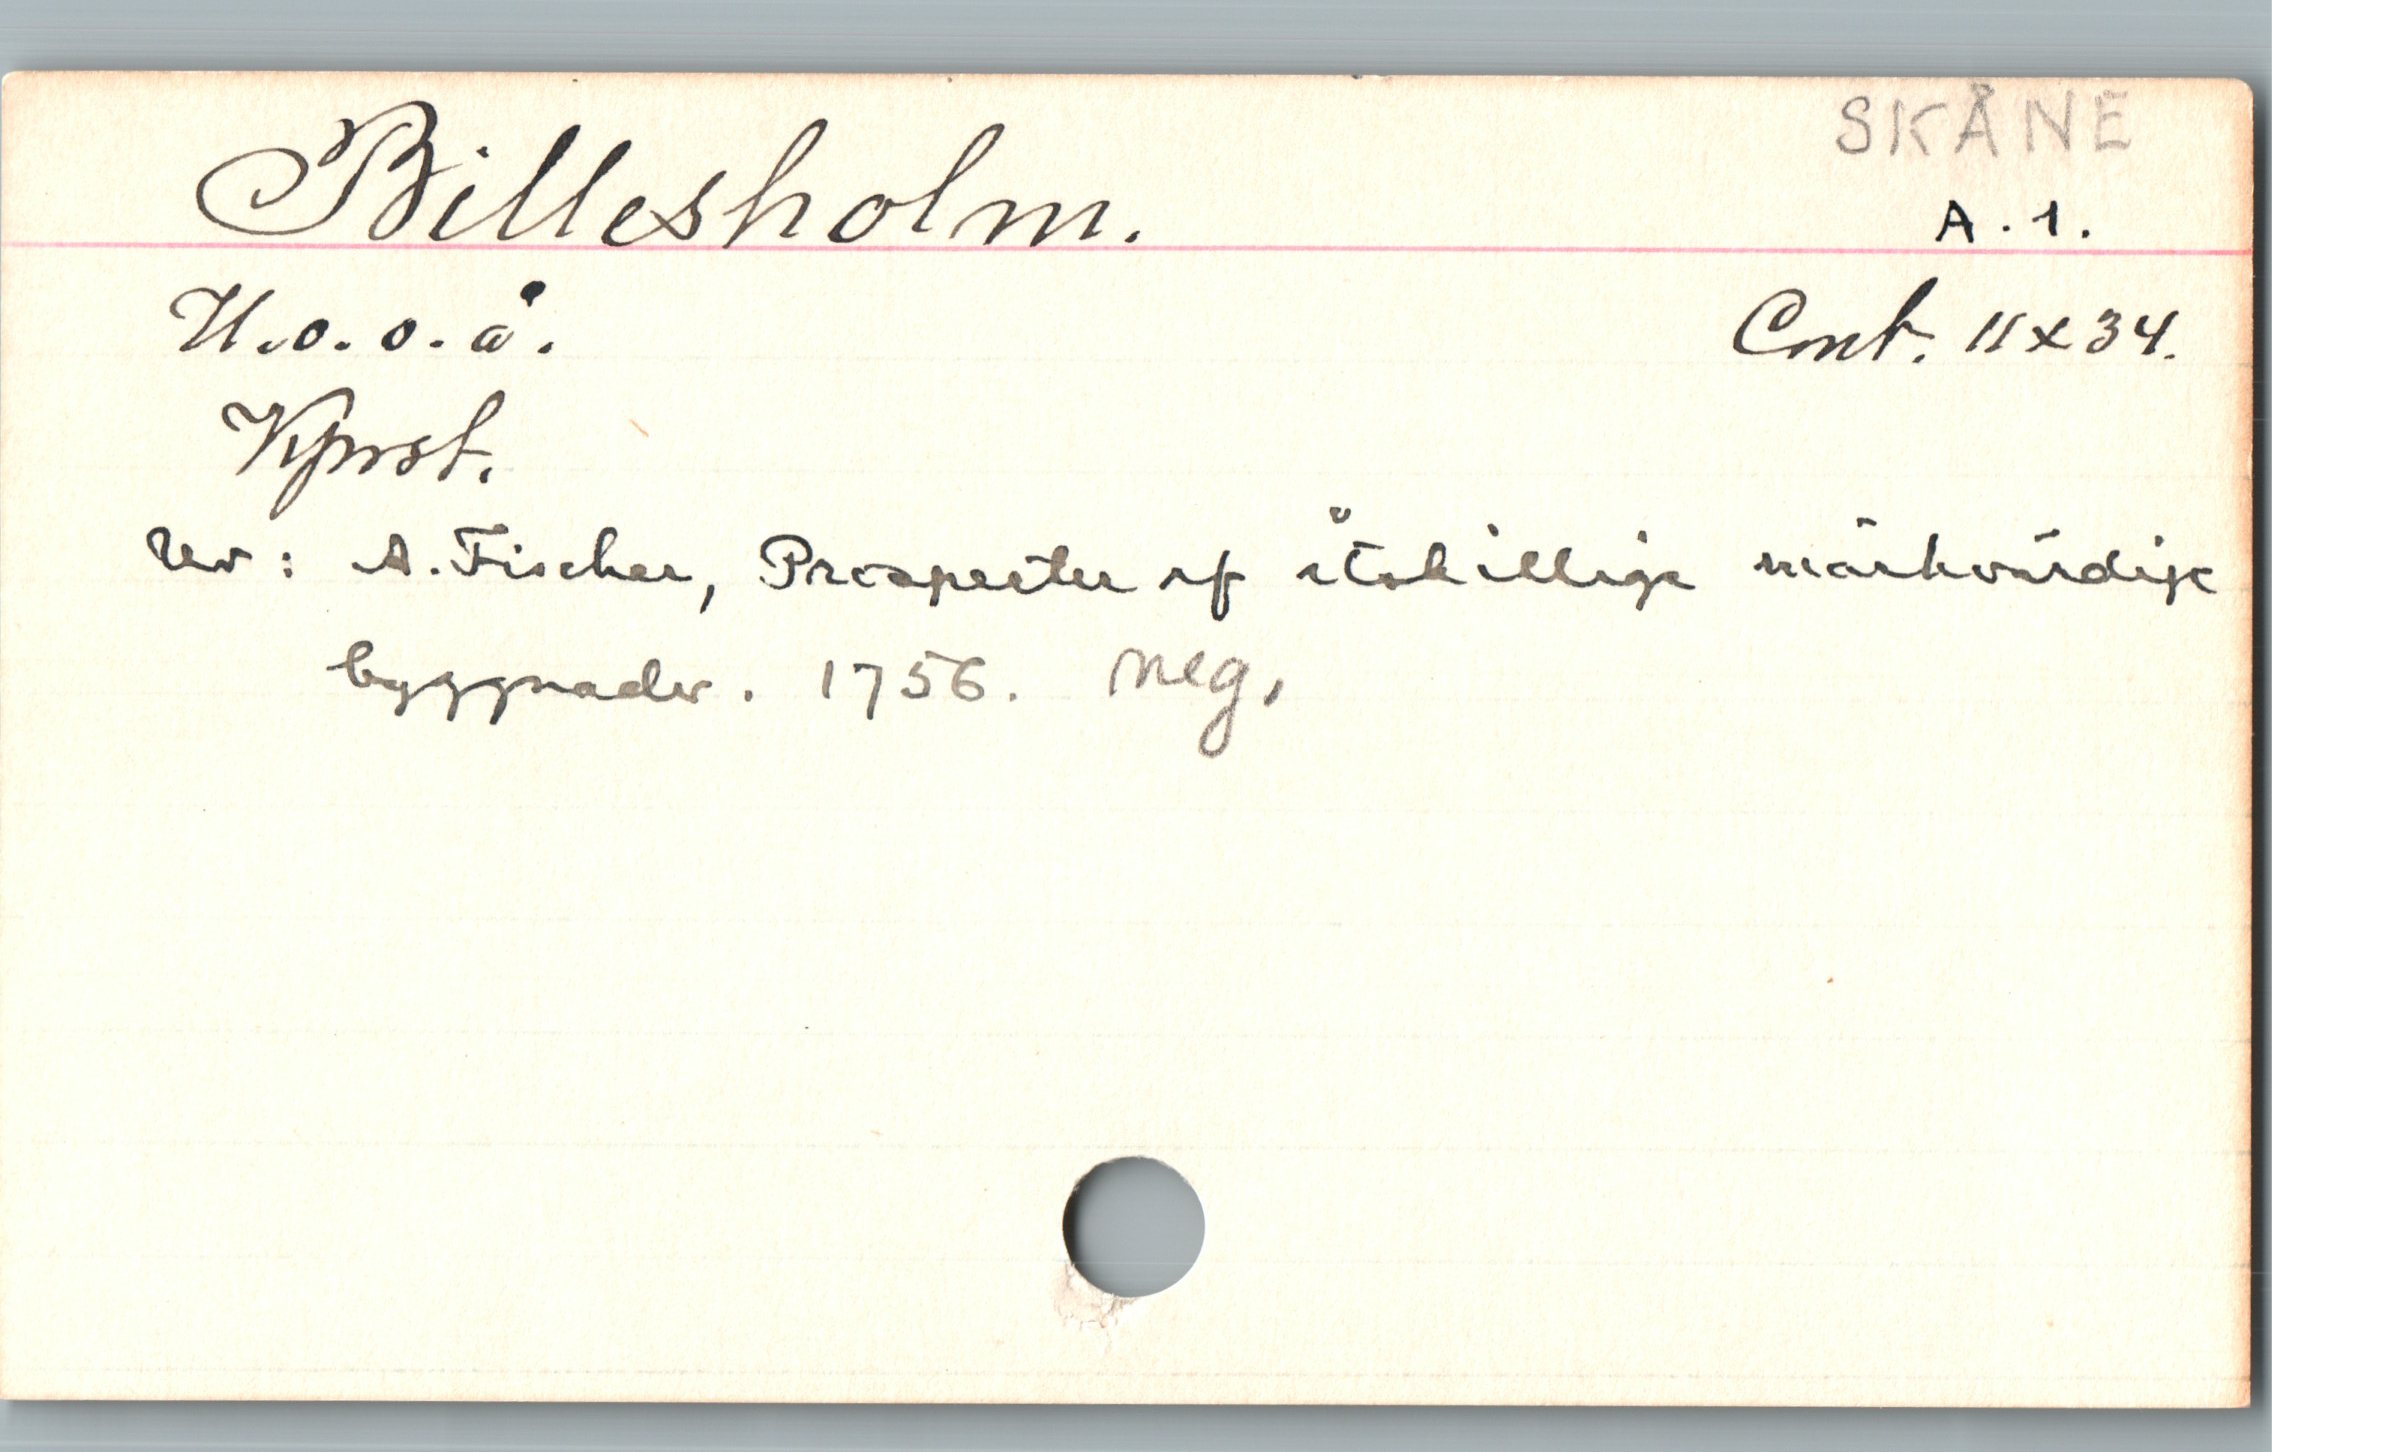 SKÅNE
Billesholm.
A.1.
U.o.o.å.
Cont. 11x34.
Kprst.
Ur: A. Fischer, Prospecter af åtskillige märkvärdige
byggnader. 1756. neg.